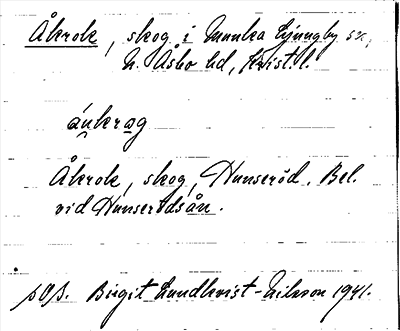 Åkrok, skog i Munka Ljungby sn,
N. Åsbo hd, Krist. l.
Åkrok, skog, Hunseröd. Bel.
vid Hunserödsån.
Birgit Lundkvist-Nilsson 1941.